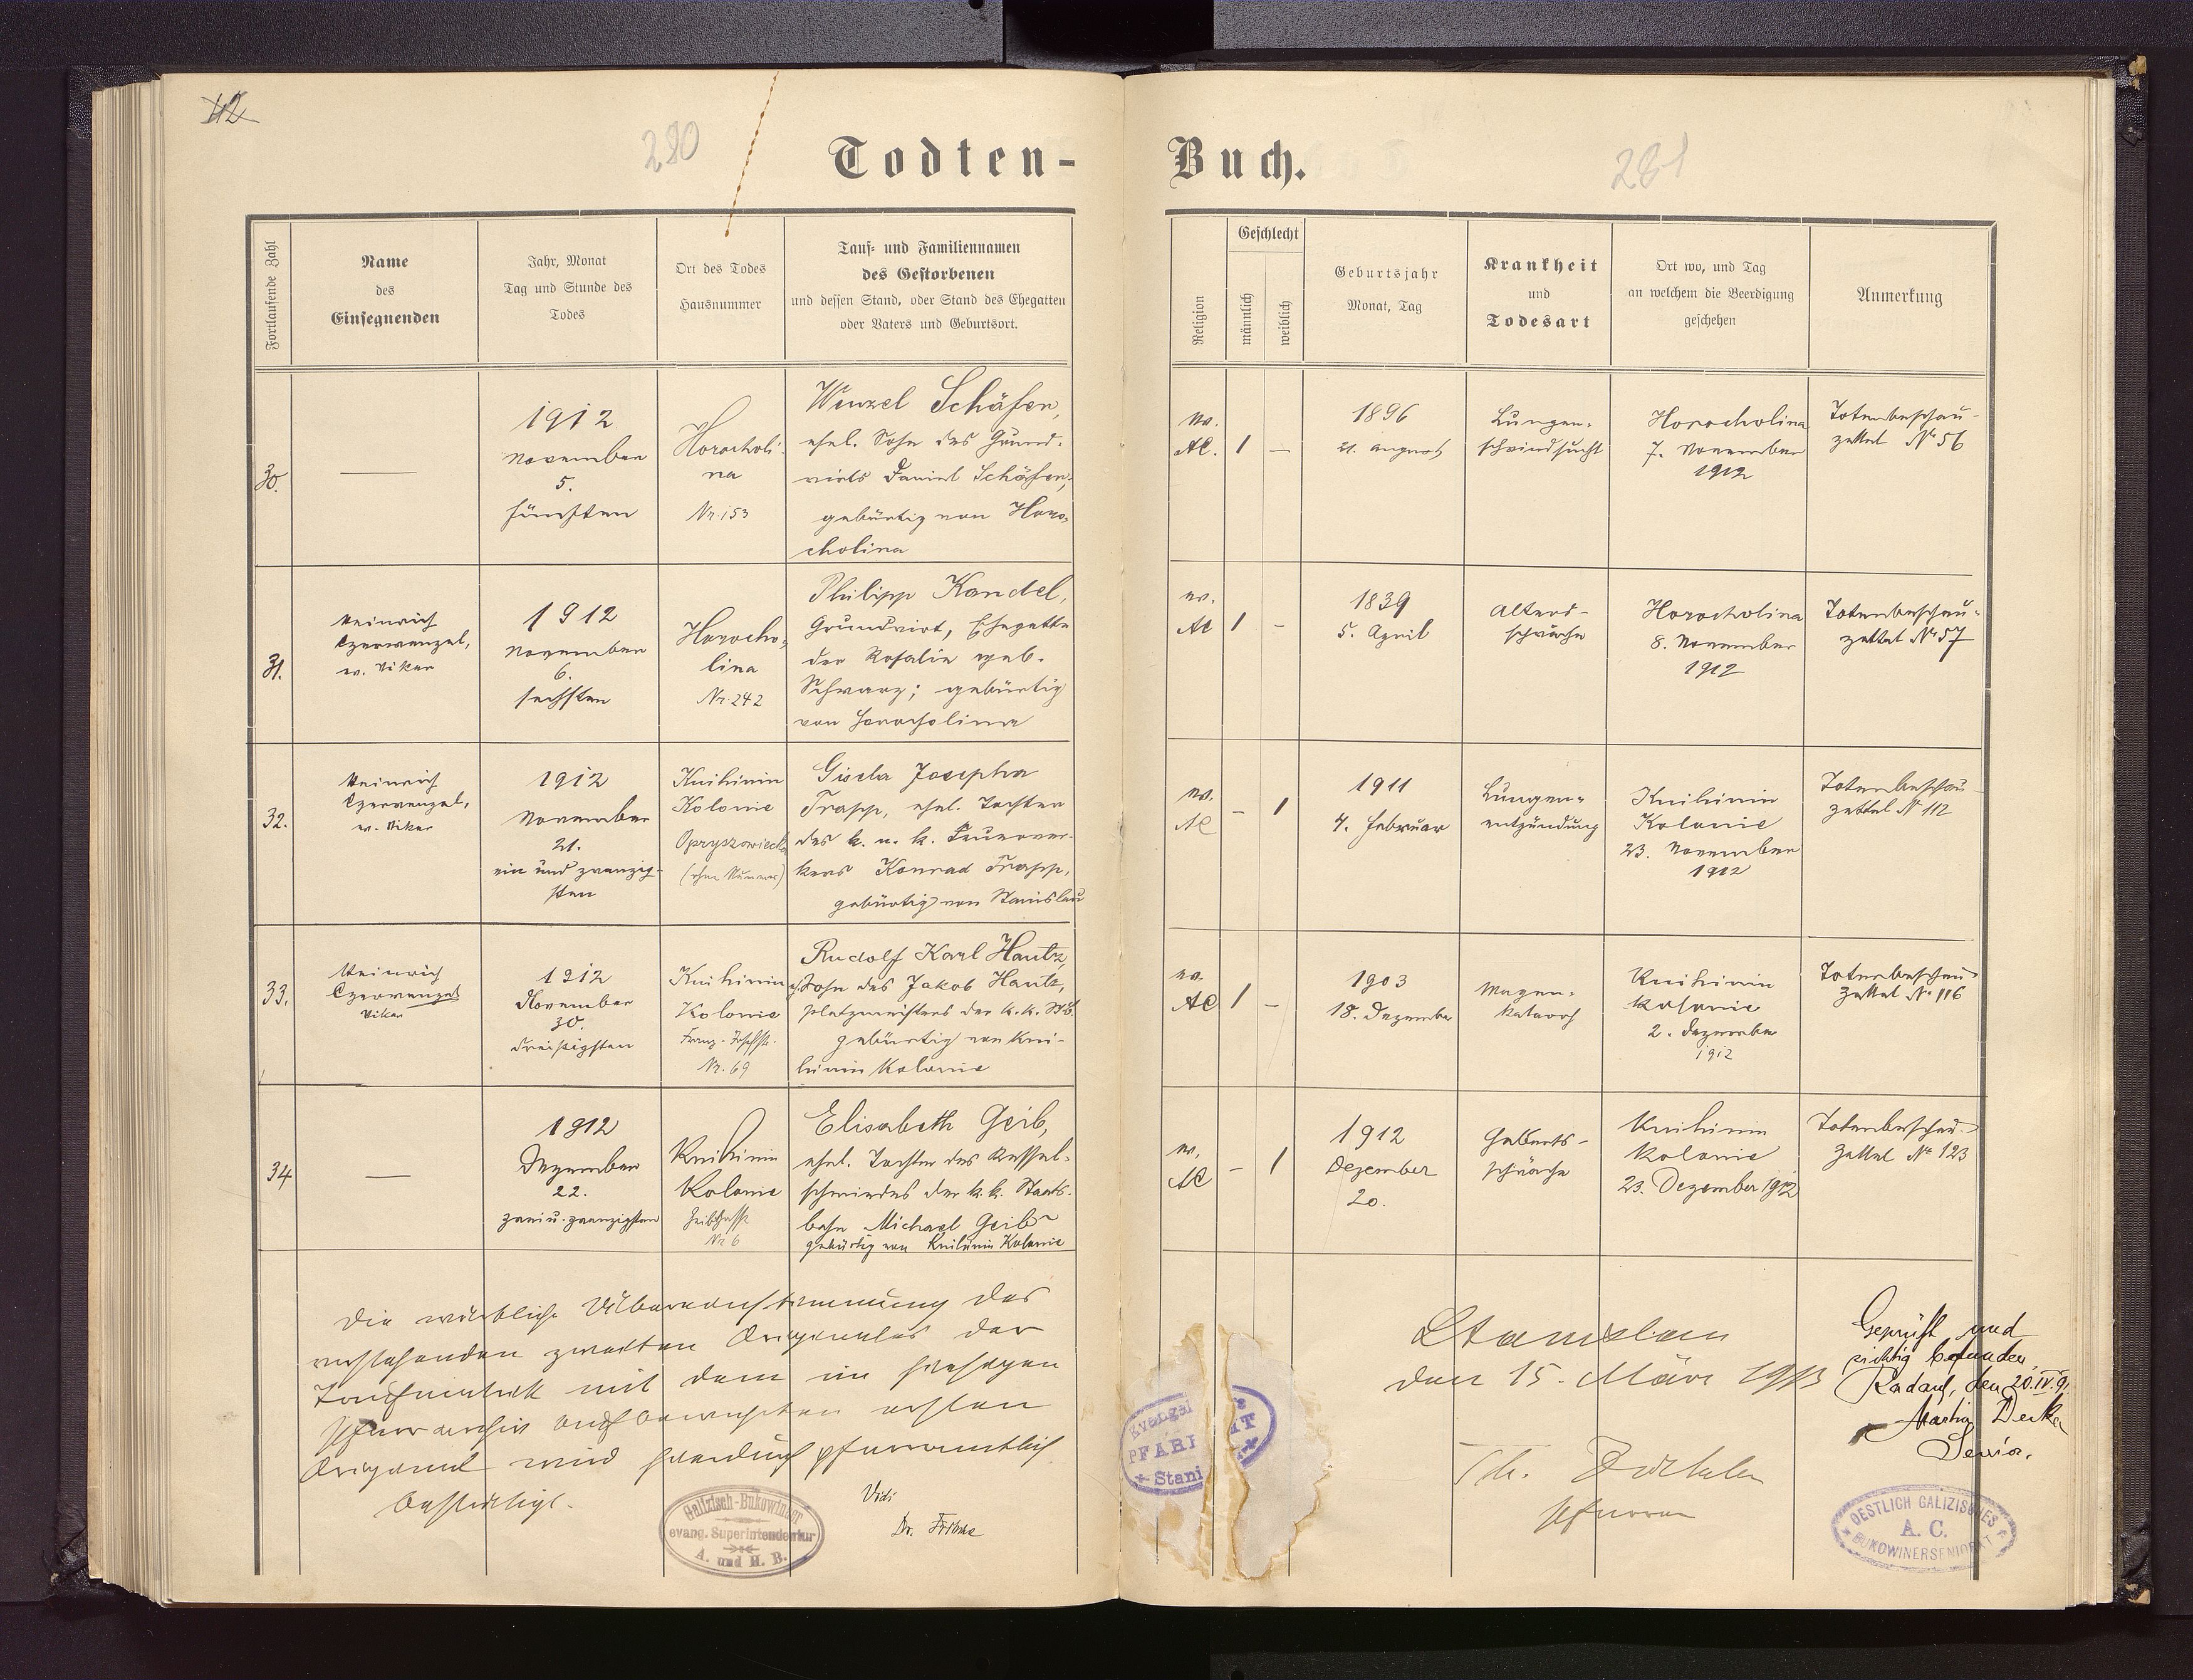 42
280
Todten-
Buch.
281
Fortlaufende Zahl
Name
des
Einsegnenden
Jahr, Monat
Tag und Stunde des
Todes
Ort des Todes
Hausnummer
Tauf- und Familiennamen
des Gestorbenen
und dessen Stand, oder Stand des Ehegatten
oder Vaters und Geburtsort.
Religion
Geschlecht
männlich
weiblich
Geburtsjahr
Monat, Tag
Krankheit
und
Todesart
Ort wo, und Tag
an welchem die Beerdigung
geschehen
Anmerkung
30.
—
1912
November
5.
fünften
Horocholi-
na
Nr. 153
Wenzel Schäfer,
ehel. Sohn des Grund-
wirts Daniel Schäfer,
gebürtig von Horo-
cholina
ev.
AC.
1
—
1896
21. August
Lungen-
schwindsucht
Horocholina
7. November
1912
Totenbeschau-
zettel No 56
31.
Heinrich
Czerwenzel,
ev. Vikar
1912
November
6.
sechsten
Horocho-
lina
Nr. 242
Philipp Kandel,
Grundwirt, Ehegatte
der Rosalia geb.
Schwarz; gebürtig
von Horocholina
ev.
AC
1
-
1839
5. April
Alters-
schwäche
Horocholina
8. November
1912
Totenbeschau-
zettel No 57
32.
Heinrich
Czerwenzel,
ev. Vikar
1912
November
21.
ein und zwanzig-
sten
Knihinin
Kolonie
Opryszowiecka
(ohne Nummer)
Gisela Josepha
Trapp, ehel. Tochter
des k. u. k. Feuerwer-
kers Konrad Trapp,
gebürtig von Stanislau
ev.
AC
-
1
1911
4. Februar
Lungen-
entzündung
Knihinin
Kolonie
23. November
1912
Totenbeschau
zettel No 112
33.
Heinrich
Czerwenzel
Vikar
1912
November
30.
dreißigsten
Knihinin
Kolonie
Franz-Josefstr.
Nr. 69
Rudolf Karl Hautz,
Sohn des Jakob Hautz,
Platzmeisters der k. k. StB
gebürtig von Kni-
hinin Kolonie
ev.
AC
1
-
1903
18. Dezember
Magen-
katarrh
Knihinin
Kolonie
2. Dezember
1912
Totenbeschau
Zettel No 116
34
—
1912
Dezember
22.
zwei u. zwanzigsten
Knihinin
Kolonie
Nr. 6
Elisabeth Geib,
ehel. Tochter des Kessel-
schmiedes der k. k. Staats-
bahn Michael Geib
gebürtig von Knihinin Kolonie
ev.
AC
-
1
1912
Dezember
20.
Geburts-
schwäche
Knihinin
Kolonie
23. Dezember 1912
Totenbeschau-
Zettel No 123
Die wörtliche Übereinstimmung des
vorstehenden zweiten Originales der
mit dem im hiesigen
Pfarrarchiv aufbewahrten ersten
Original wird hierdurch pfarramtlich
bestätigt.
Vidi
Dr. Fritsche
Galizisch-Bukowiner
evang. Superintendentur
A. und H. B.
Evangel
PFARR
Stani
Stanislau
den 15. März 1913
Th. Zöckler
Pfarrer
Geprüft und
richtig befunden,
Radautz, den 20.IV.91
Martin Decker
Senior.
OESTLICH GALIZISCHES
A. C.
BUKOWINERSENIORAT